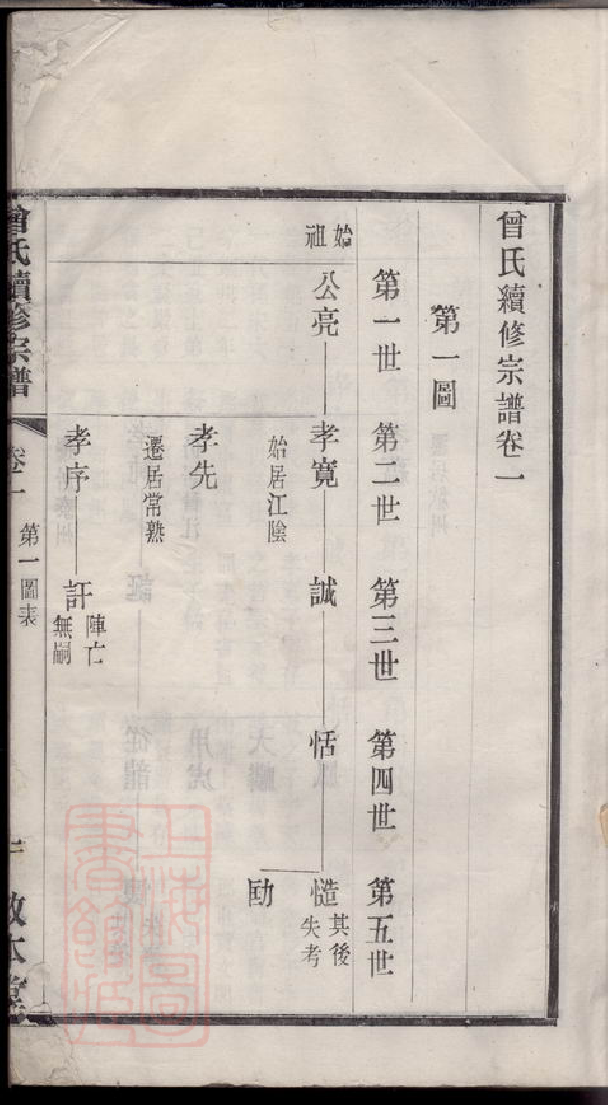 曾氏續修宗譜卷一
第一圖
第一世
第二世
第三世
第四世
第五世
始祖
公亮
孝寬
誠
恬
慥
其後
失考
始居江陰
勔
孝先
遷居常熟
孝序
訏
陣亡
無嗣
曾氏續修宗譜
卷一
第一圖表
一
敦本堂
上海圖書館藏